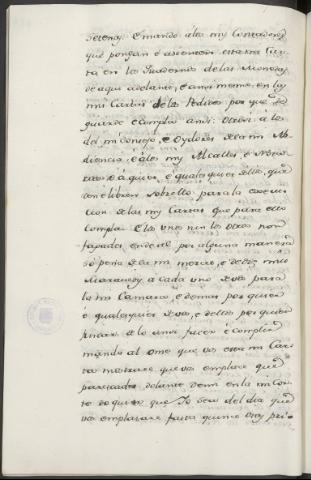 Setenes. E mando á los my Contadores
que pongan é asienten esta mi Car-
ta en los Quadernos de las Monedas,
de aquí adelante, é ansi mesmo en las
mis Cartas de los Pedidos por que se
guarde é cumpla ansi: otrosi á los
del mi Consejo, e Oydores de la mi Au-
diencia, é á los my Alcalles, é Nota-
rios é á quier, é qualesquier dellos, que
den é libren sobrello para la execu-
cion de las my Cartas que para esto
Complan. E los unos nin los otros non
fagades ende al por alguna manera
só pena de la mi merced, e de dies mill
Maravedis á cada uno de vos para
la mi Camara, e demas por quien
é qualesquier de vos, e dellos por quien
fincare de lo ansi faser é complir
mando al ome que vos esta mi Car-
ta mostrare, que vos emplace que
parescades delante de mi en la mi cor-
te do quier que Yo sea del dia que
vos emplasare fasta quince dias pri-